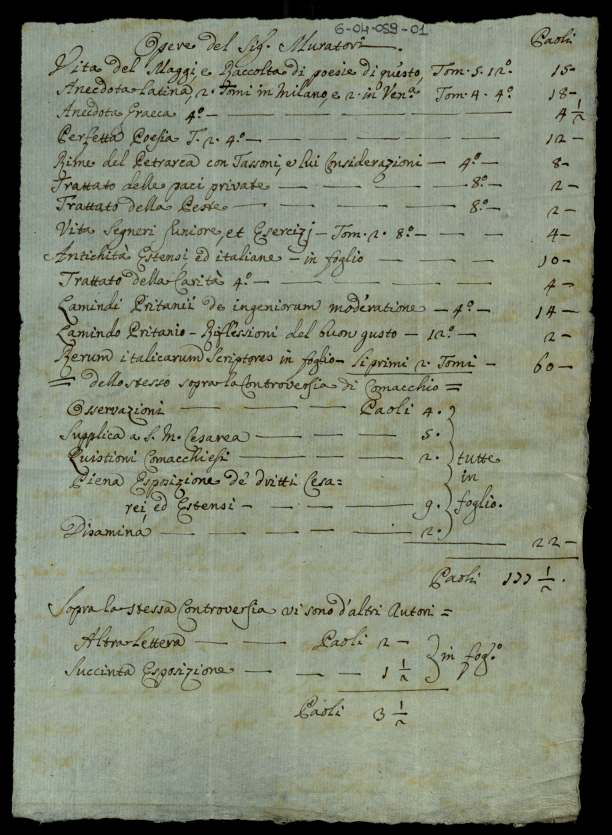 6-04-059-01
Opere del Sig. Muratori. Paoli
Vita del Maggi, e Raccolta di poesie di questo, Tom. 5. 12.º 15-
Anecdota Latina, 2. Tomi in Milano, e 2. in Venª Tom. 4. 4º 18-
Anecdota Graeca 4º - 4 1/2
Perfetta Poesia T. 2. 4º - 12-
Rime del Petrarca con Tassoni, e lui Considerazioni - 4º - 8-
Trattato delle paci private - 8º - 2-
Trattato della Peste - 8º - 2-
Vita Segneri Juniore, et Esercizj - Tom. 2. 8º - 4-
Antichità Estensi ed italiane - in foglio - 10-
Trattato della Carità 4º - 4-
Lamindi Pritanii de ingeniorum moderatione - 4º - 14-
Lamindo Pritanio - Riflessioni del buon gusto - 12º - 2-
Rerum italicarum Scriptores in foglio - li primi 2. Tomi - 60-
= dello stesso sopra la Controversia di Comacchio =
Osservazioni - Paoli 4.
Supplica a S. M. Cesarea - 5.
Quistioni Comacchiesi - 2. tutte
Piena Esposizione de' dritti Cesa= in
rei ed Estensi - 9. foglio.
Disamina - 2.
22-
Paoli 177 1/2.
Sopra la stessa Controversia vi sono d'altri Autori =
Altra Lettera - Paoli 2 - in fogº
Succinta Esposizione - 1 1/2
Paoli 3 1/2